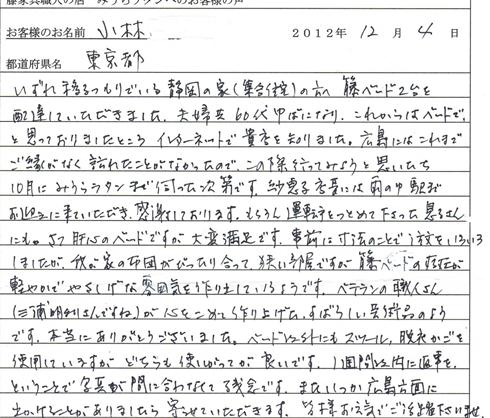 藤家具職人の店 みうらラタンへのお客様の声
お客様のお名前 小林 2012年 12月 4日
都道府県名 東京都
いずれ移るつもりでいる静岡の家(集合住宅)の方へ 籐ベッド2台を
配達していただきました。夫婦共60代半ばになり、これからはベッドで、
と思っておりましたところ インターネットで貴店を知りました。広島にはこれまで
ご縁がなく訪れたことがなかったので、この際行ってみようと思いたち
10月にみうらラタンまで伺った次第です。紗恵子店長には雨の中駅まで
お迎えに来ていただき、感謝しております。もちろん運転をつとめて下さった息子さん
にも。さて肝心のベッドですが大変満足です。事前に寸法のことで注文をいろいろ
しましたが、我が家の布団がぴったり合って、狭い部屋ですが籐ベッドの存在が
軽やかでやさしげな雰囲気を作り出しているようです。ベテランの職人さん
(三浦明利さんですね)が心をこめて作り上げた、すばらしい芸術品のよう
です。本当にありがとうございました。ベッド以外にもスツール、脱衣かごを
使用していますが どちらも使いがってが良いです。1週間以内に返事を、
ということで写真が間に合わなくて残念です。またいつか広島方面に
出かけることがありましたら 寄らせていただきます。皆様お元気でご活躍下さいませ。